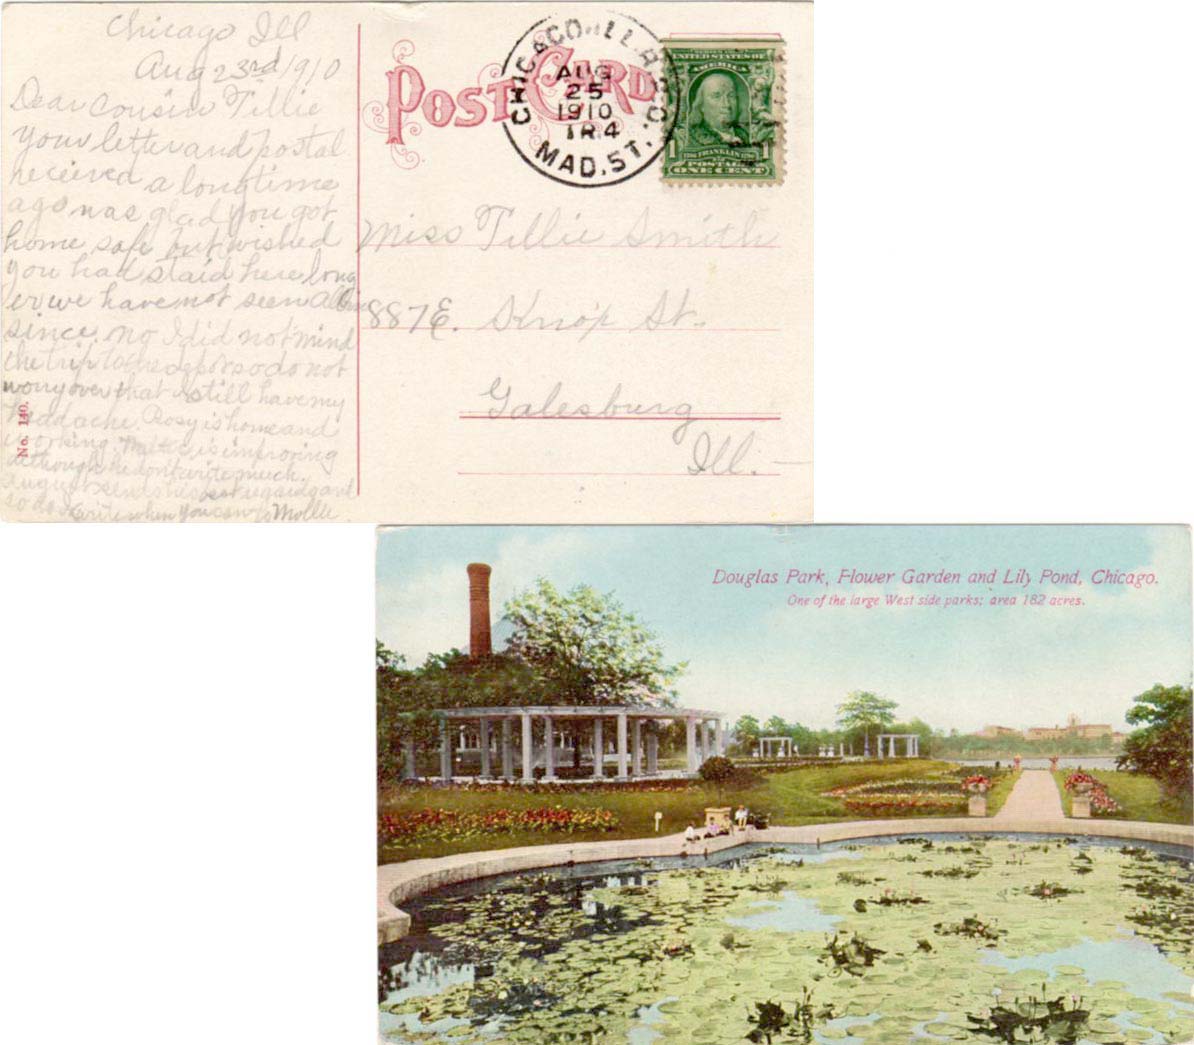 Chicago Ill
Aug 23rd 1910
Dear cousin Tillie
your letter and postal
received a long time
ago was glad you got
home safe but wished
you had staid here long
er we have not seen
since. no I did not mind
the trip to the depot so do not
worry over that I still have my
headache. Rosy is home and
is working. is improving
although he dont write much.
August sends his best regards and
so do I write when you can Mollie
No. 140.
POST CARD
CHICAGO, ILL.
AUG
25
1910
TR4
MAD. ST.
UNITED STATES OF
AMERICA
1 FRANKLIN 1
POSTAGE
ONE CENT
Miss Tillie Smith
887 E. Knox St.
Galesburg
Ill.
Douglas Park, Flower Garden and Lily Pond, Chicago.
One of the large West side parks; area 182 acres.